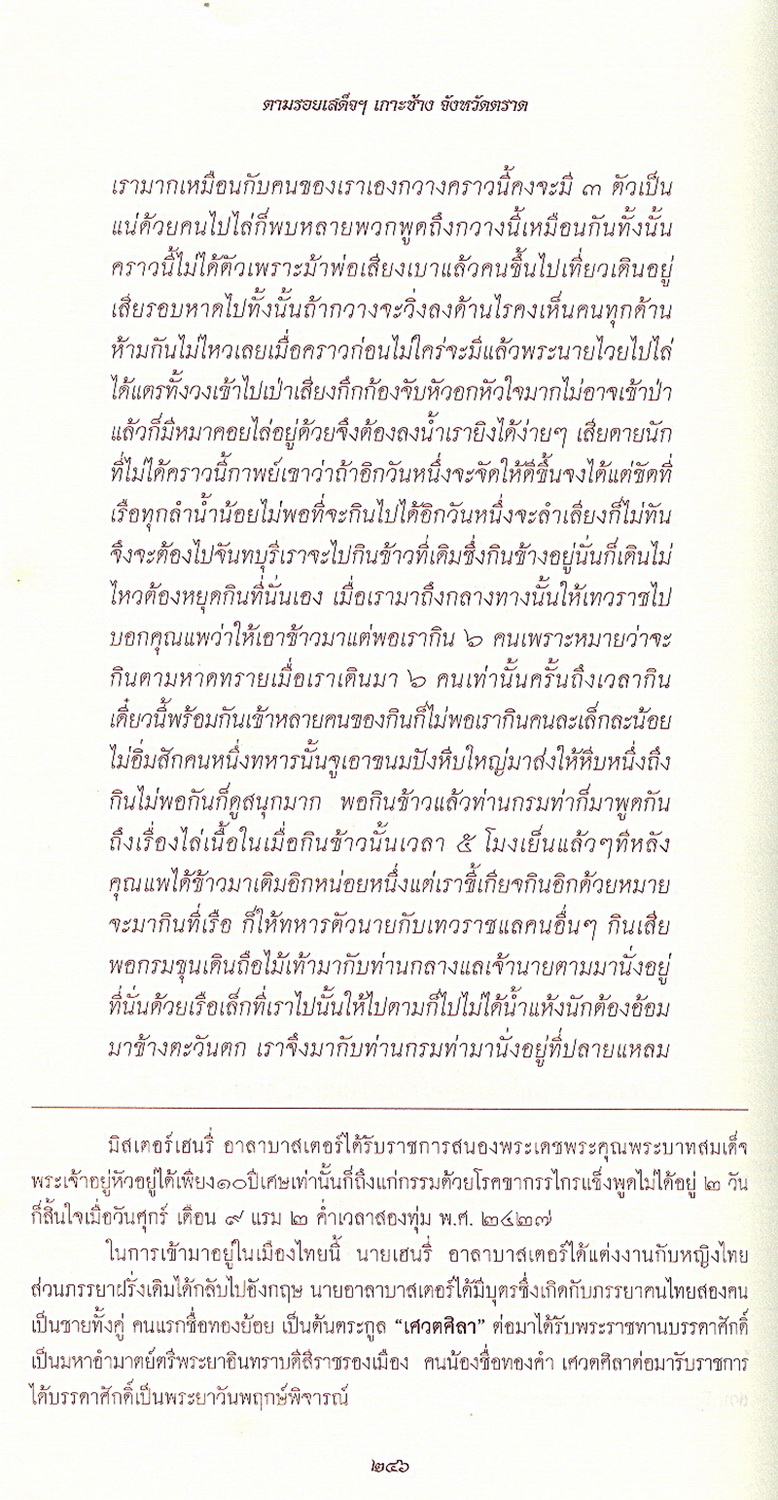 ตามรอยเสด็จฯ เกาะช้าง จังหวัดตราด
เรามากเหมือนกับคนของเราเองกวางคราวนี้คงจะมี ๓ ตัวเป็น
แน่ด้วยคนไปไล่ก็พบหลายพวกพูดถึงกวางนี้เหมือนกันทั้งนั้น
คราวนี้ไม่ได้ตัวเพราะม้าพ่อเสียงเบาแล้วคนขึ้นไปเที่ยวเดินอยู่
เสียรอบหาดไปทั้งนั้นถ้ากวางจะวิ่งลงด้านไรคงเห็นคนทุกด้าน
ห้ามกันไม่ไหวเลยเมื่อคราวก่อนไม่ใคร่จะมีแล้วพระนายไวยไปไล่
ได้แตรทั้งวงเข้าไปเป่าเสียงกึกก้องจับหัวอกหัวใจมากไม่อาจเข้าป่า
แล้วก็มีหมาคอยไล่อยู่ด้วยจึงต้องลงน้ำเรายิงได้ง่ายๆ เสียดายนัก
ที่ไม่ได้คราวนี้กาพย์เขาว่าถ้าอีกวันหนึ่งจะจัดให้ดีขึ้นจงได้แต่ขัดที่
เรือทุกลำน้ำน้อยไม่พอที่จะกินไปได้อีกวันหนึ่งจะลำเลียงก็ไม่ทัน
จึงจะต้องไปจันทบุรีเราจะไปกินข้าวที่เดิมซึ่งกินช้างอยู่นั่นก็เดินไม่
ไหวต้องหยุดกินที่นั่นเอง เมื่อเรามาถึงกลางทางนั้นให้เทวราชไป
บอกคุณแพว่าให้เอาข้าวมาแต่พอเรากิน ๖ คนเพราะหมายว่าจะ
กินตามหาดทรายเมื่อเราเดินมา ๖ คนเท่านั้นครั้นถึงเวลากิน
เดี๋ยวนี้พร้อมกันเข้าหลายคนของกินก็ไม่พอเรากินคนละเล็กละน้อย
ไม่อิ่มสักคนหนึ่งทหารนั้นจูเอาขนมปังหีบใหญ่มาส่งให้หีบหนึ่งถึง
กินไม่พอกันก็ดูสนุกมาก พอกินข้าวแล้วท่านกรมท่าก็มาพูดกัน
ถึงเรื่องไล่เนื้อในเมื่อกินข้าวนั้นเวลา ๕ โมงเย็นแล้วๆทีหลัง
คุณแพได้ข้าวมาเติมอีกหน่อยหนึ่งแต่เราขี้เกียจกินอีกด้วยหมาย
จะมากินที่เรือ ก็ให้ทหารตัวนายกับเทวราชแลคนอื่นๆ กินเสีย
พอกรมขุนเดินถือไม้เท้ามากับท่านกลางแลเจ้านายตามมานั่งอยู่
ที่นั่นด้วยเรือเล็กที่เราไปนั้นให้ไปตามก็ไปไม่ได้น้ำแห้งนักต้องอ้อม
มาข้างตะวันตก เราจึงมากับท่านกรมท่ามานั่งอยู่ที่ปลายแหลม
มิสเตอร์เฮนรี่ อาลาบาสเตอร์ได้รับราชการสนองพระเดชพระคุณพระบาทสมเด็จ
พระเจ้าอยู่หัวอยู่ได้เพียง๑๐ปีเศษเท่านั้นก็ถึงแก่กรรมด้วยโรคขากรรไกรแข็งพูดไม่ได้อยู่ ๒ วัน
ก็สิ้นใจเมื่อวันศุกร์ เดือน ๙ แรม ๒ ค่ำเวลาสองทุ่ม พ.ศ. ๒๔๒๗
ในการเข้ามาอยู่ในเมืองไทยนี้ นายเฮนรี่ อาลาบาสเตอร์ได้แต่งงานกับหญิงไทย
ส่วนภรรยาฝรั่งเดิมได้กลับไปอังกฤษ นายอาลาบาสเตอร์ได้มีบุตรซึ่งเกิดกับภรรยาคนไทยสองคน
เป็นชายทั้งคู่ คนแรกชื่อทองย้อย เป็นต้นตระกูล “เศวตศิลา” ต่อมาได้รับพระราชทานบรรดาศักดิ์
เป็นมหาอำมาตย์ตรีพระยาอินทราบดีสีราชรองเมือง คนน้องชื่อทองคำ เศวตศิลาต่อมารับราชการ
ได้บรรดาศักดิ์เป็นพระยาวันพฤกษ์พิจารณ์
๒๔๖